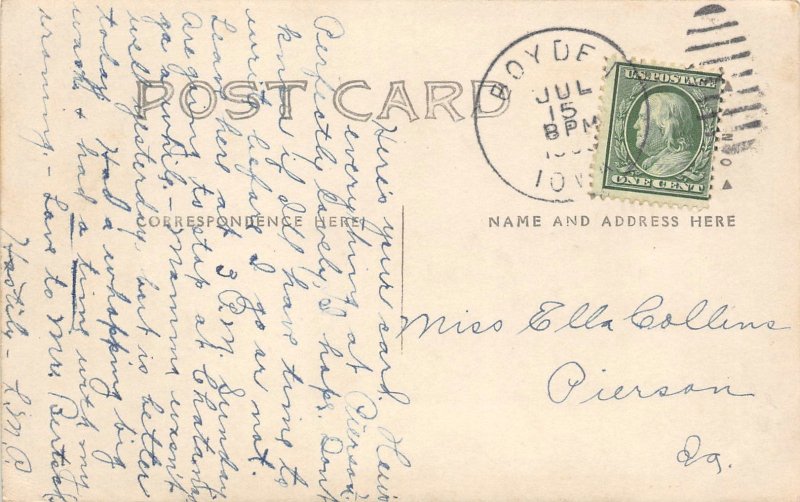 POST CARD
CORRESPONDENCE HERE
NAME AND ADDRESS HERE
BOYDEN
JUL
15
8PM
IOWA
U.S. POSTAGE
ONE CENT
Miss Ella Collins
Pierson
Ia.
Here's your card
everything at Pierson
Perfectly lovely, I hope. Dont
know if I'll have time to
write before I go or not.
Leave here at 3 P.M. Sunday
Are going to stop at
ga awhile. - Mamma wasn't
well yesterday, but is better
today. Had a whopping big
wash & had a time with my
ironing. - Love to Mrs.
Hastily - L.M.P.